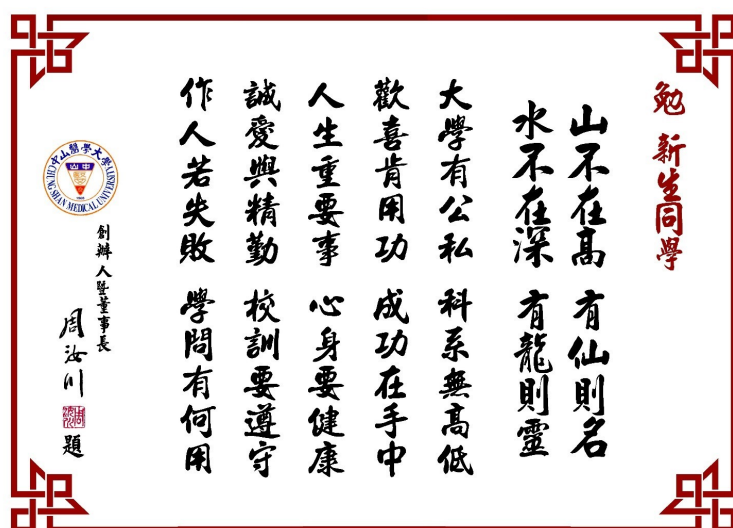 勉 新生同學
山不在高 有仙則名
水不在深 有龍則靈
大學有公私 科系無高低
歡喜肯用功 成功在手中
人生重要事 心身要健康
誠愛與精勤 校訓要遵守
作人若失敗 學問有何用
中山醫學大學
CHUNG SHAN MEDICAL UNIVERSITY
中山
創辦人暨董事長
周汝川
題